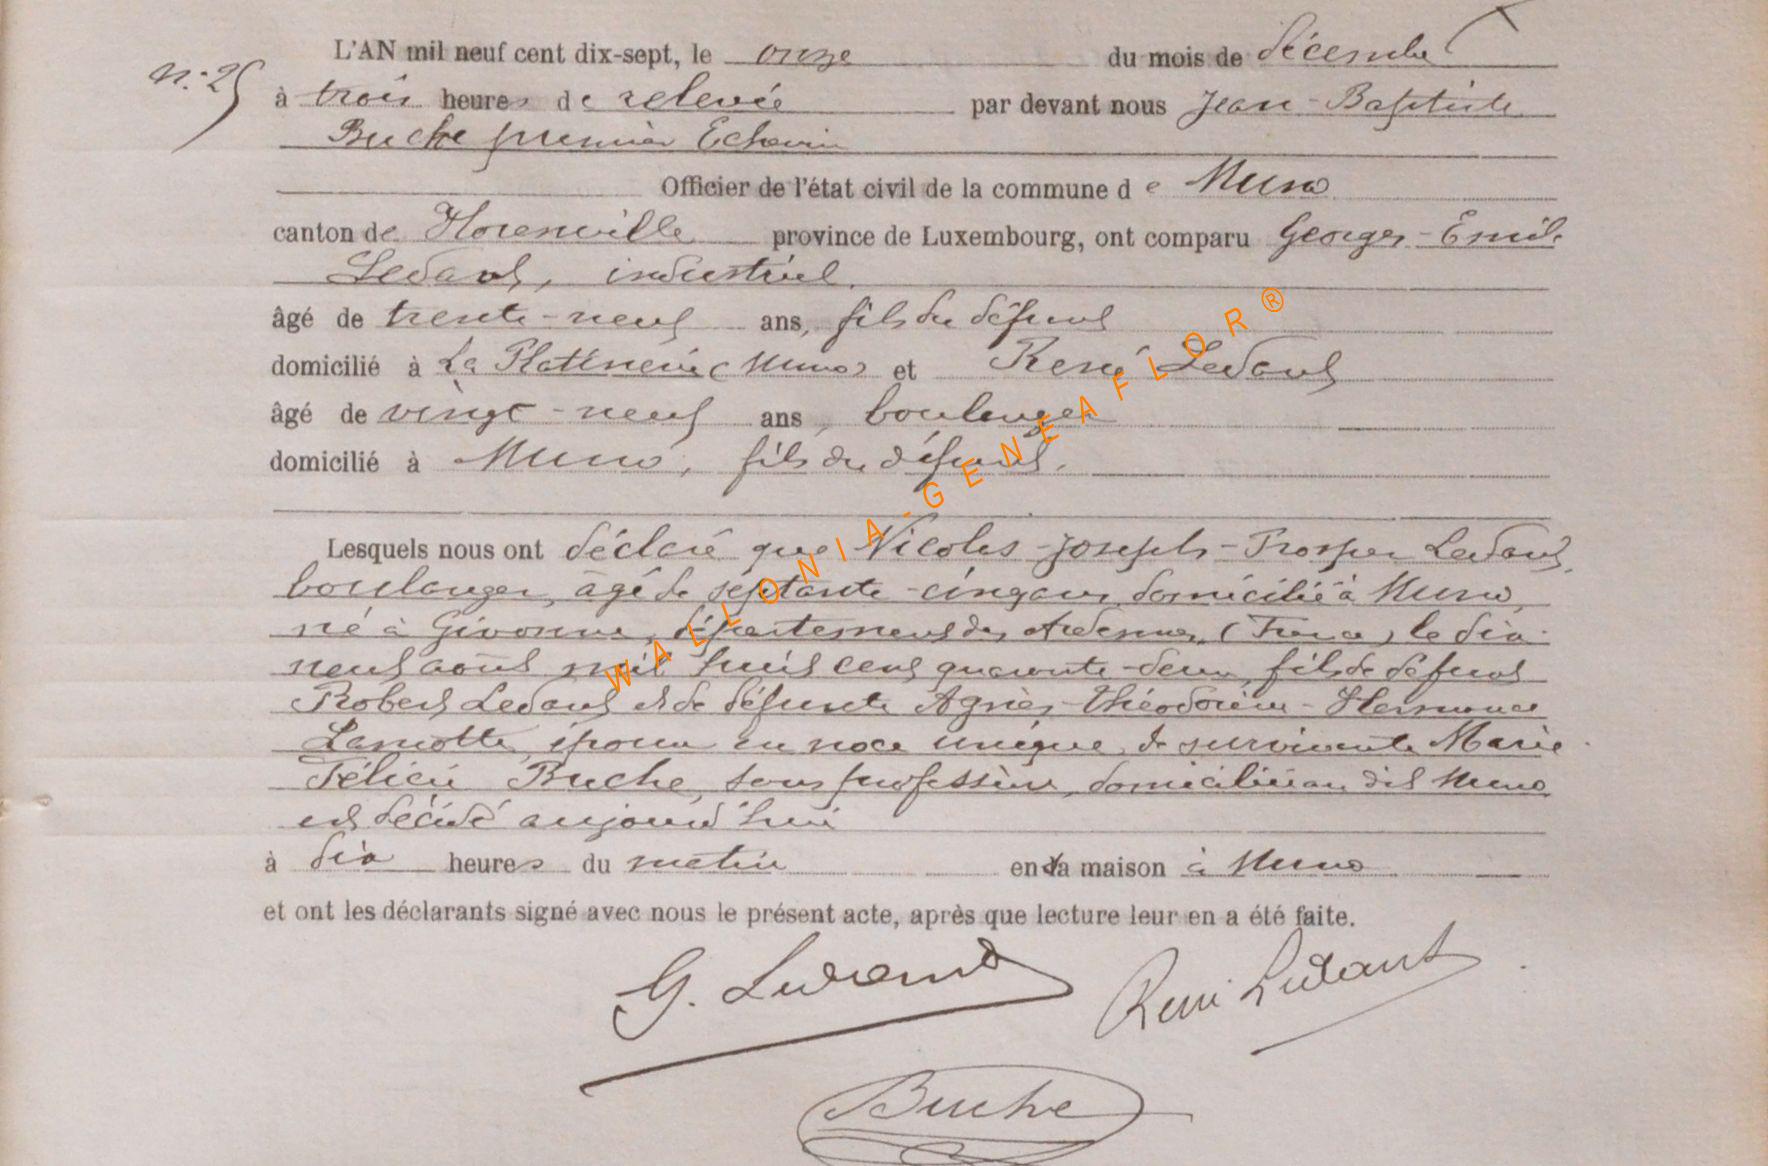 L'AN mil neuf cent dix-sept, le onze du mois de décembre
n° 25 à trois heures de relevée par devant nous Jean-Baptiste
Buche premier Echevin
Officier de l'état civil de la commune de Muno
canton de Florenville province de Luxembourg, ont comparu Georges-Emile
Ledant, industriel.
âgé de trente-neuf ans, fils du défunt
domicilié à La Platinerie (Muno) et René Ledant
âgé de vingt-neuf ans, boulanger
domicilié à Muno, fils du défunt.
Lesquels nous ont déclaré que Nicolas-Joseph-Prosper Ledant,
boulanger, âgé de septante-cinq ans, domicilié à Muno,
né à Givonne, département des Ardennes, (France) le dix-
neuf août mil huit cent quarante-deux, fils de défunt
Robert Ledant et de défunte Agnès-Théodorine-Hermance
Lamotte, époux en noce unique de survivante Marie
Félicie Buche, sans profession, domiciliée au dit Muno
est décédé aujourd'hui
à dix heures du matin en sa maison à Muno
et ont les déclarants signé avec nous le présent acte, après que lecture leur en a été faite.
G. Ledant
René Ledant
Buche
WALLONIA-GENEAFLOR®